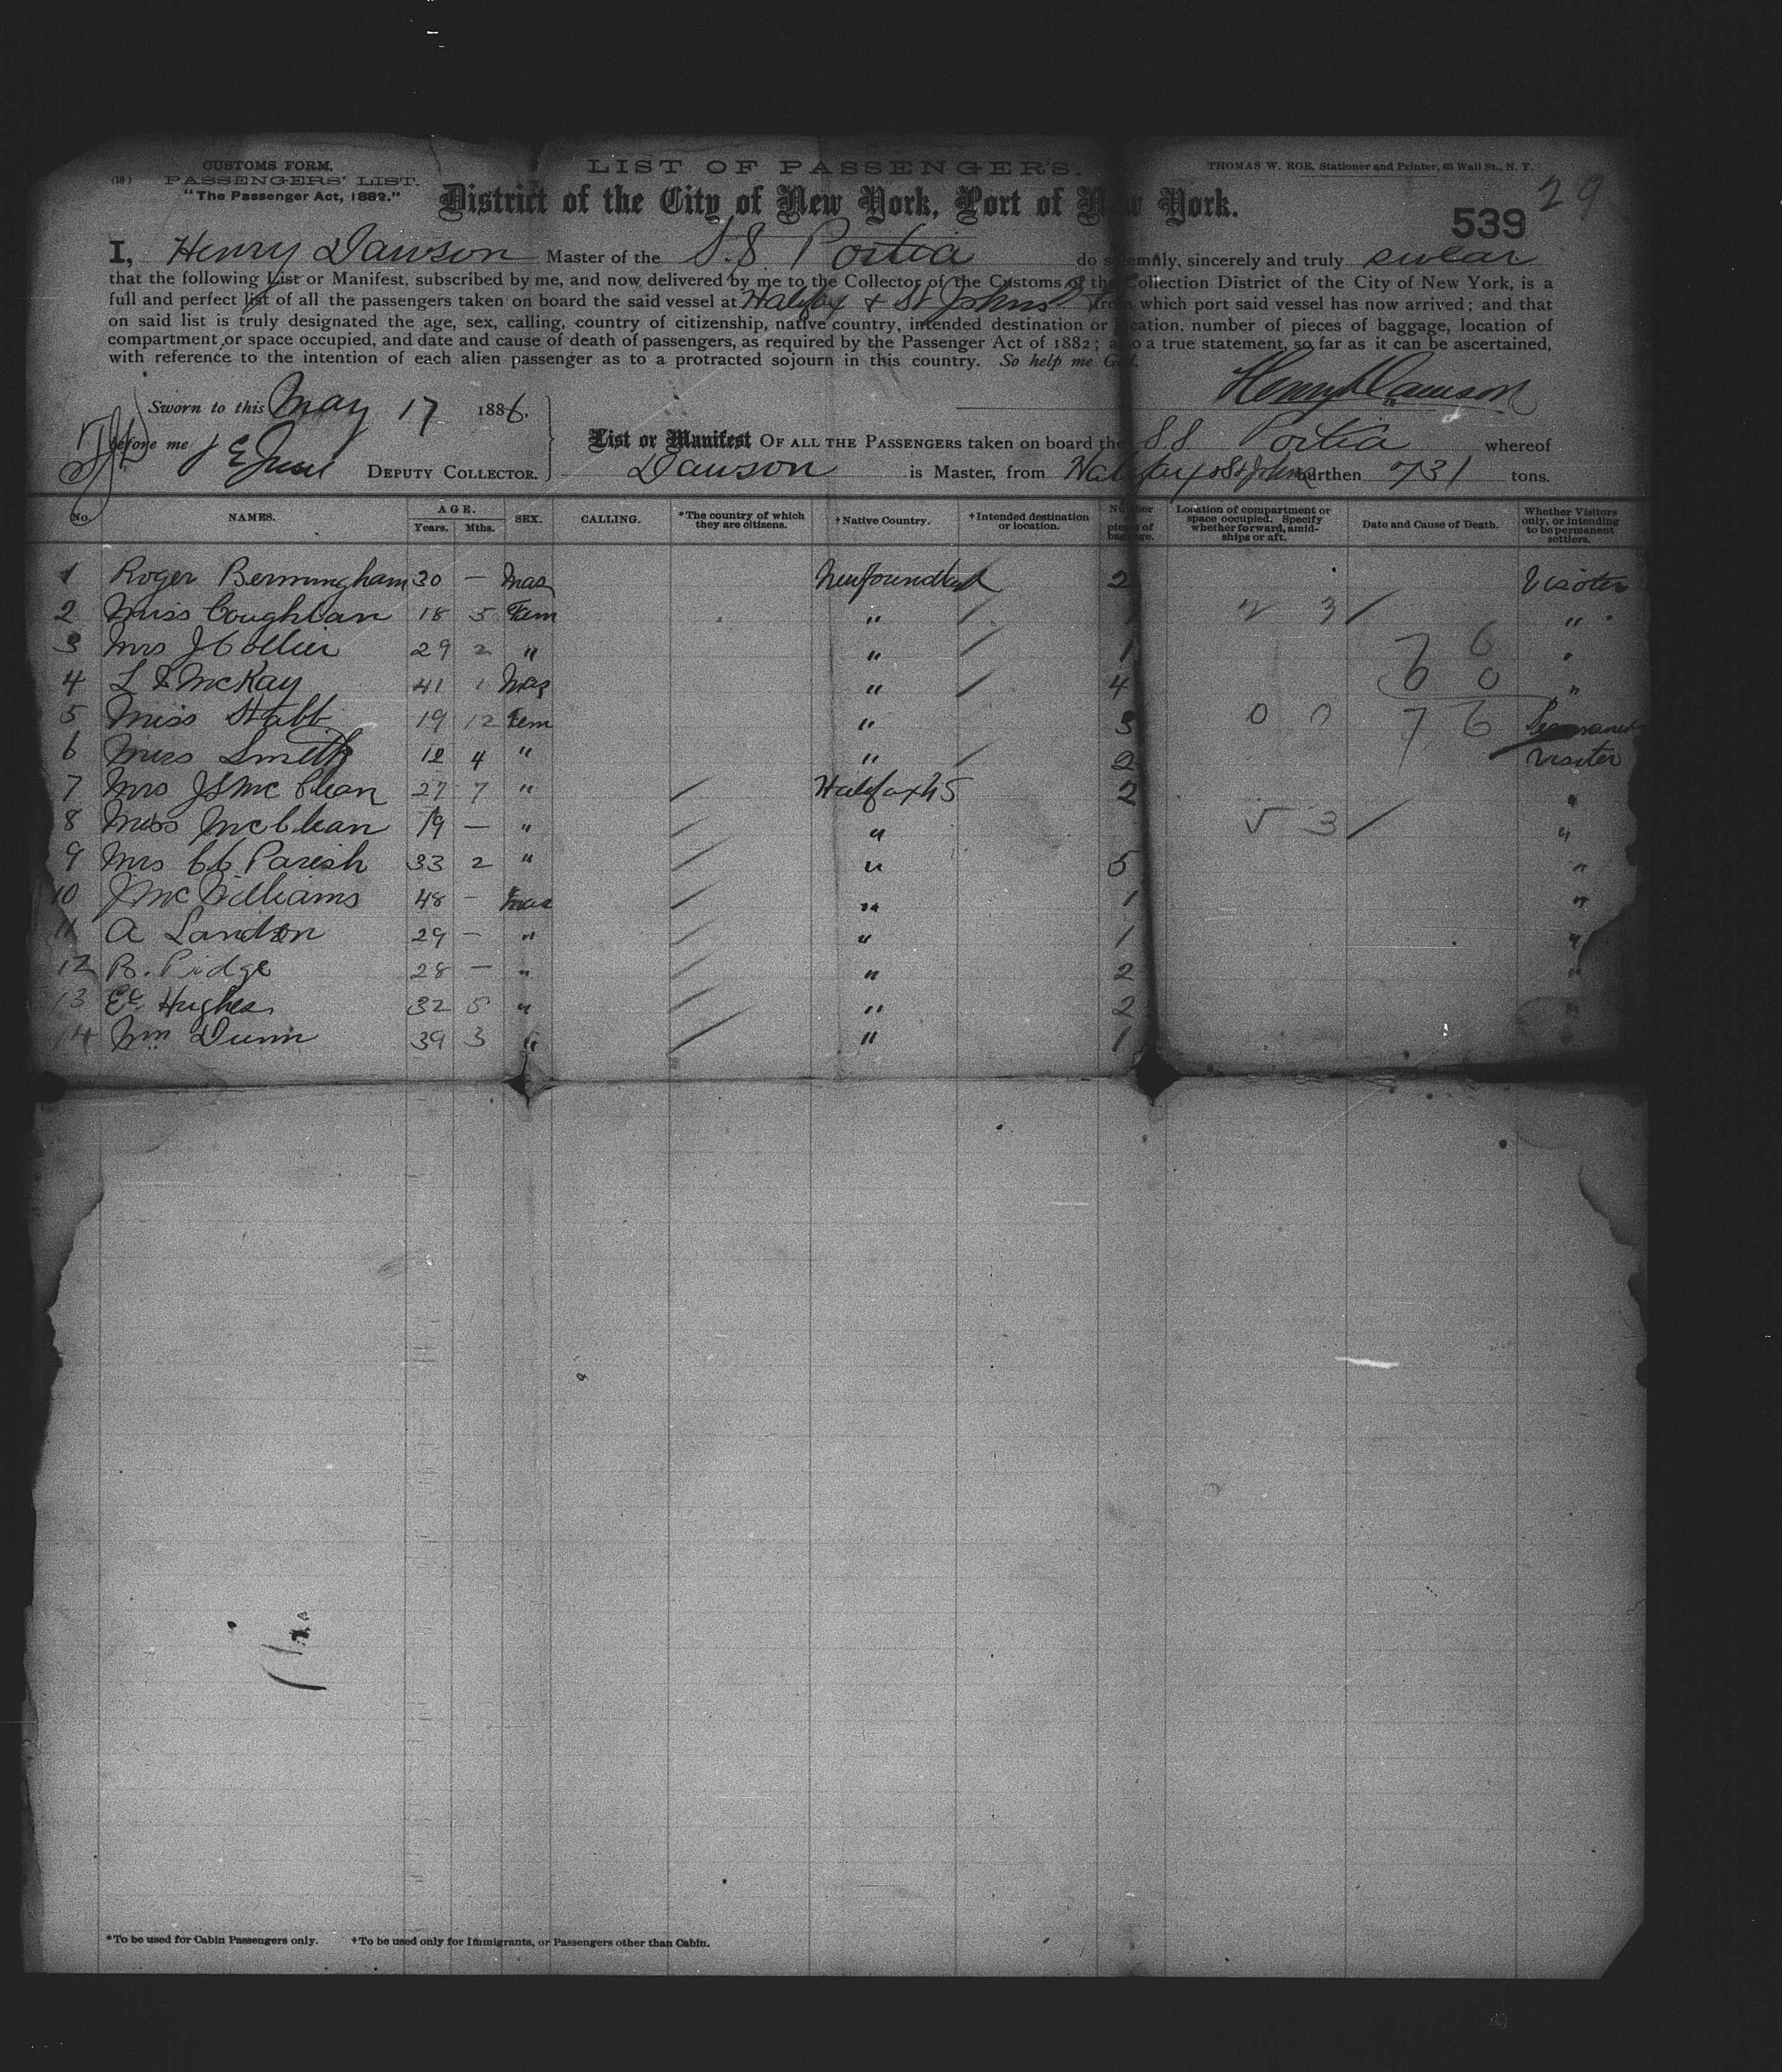 CUSTOMS FORM.
(18) PASSENGERS' LIST.
"The Passenger Act, 1882."
LIST OF PASSENGERS.
THOMAS W. ROE, Stationer and Printer, 63 Wall St., N. Y.
District of the City of New York, Port of New York.
29
539
I, Henry Dawson Master of the S.S. Portia do solemnly, sincerely and truly swear
that the following List or Manifest, subscribed by me, and now delivered by me to the Collector of the Customs of the Collection District of the City of New York, is a
full and perfect list of all the passengers taken on board the said vessel at Halifax + St Johns from which port said vessel has now arrived; and that
on said list is truly designated the age, sex, calling, country of citizenship, native country, intended destination or location, number of pieces of baggage, location of
compartment or space occupied, and date and cause of death of passengers, as required by the Passenger Act of 1882; also a true statement, so far as it can be ascertained,
with reference to the intention of each alien passenger as to a protracted sojourn in this country. So help me God.
Henry Dawson
Sworn to this May 17 1886.
before me
DEPUTY COLLECTOR.
List or Manifest OF ALL THE PASSENGERS taken on board the S.S. Portia whereof
Dawson is Master, from Halifax & St Johns burthen 731 tons.
No. NAMES. AGE. Years. Mths. SEX. CALLING. *The country of which they are citizens. †Native Country. †Intended destination or location. Number pieces of baggage. Location of compartment or space occupied. Specify whether forward, amidships or aft. Date and Cause of Death. Whether Visitors only, or intending to be permanent settlers.
1 Roger Bermingham 30 — Mas Newfoundland 2 Visiter
2 Miss Coughlan 18 5 Fem " / 1 3 / "
3 Mrs J Collier 29 2 " " / 1 7 6 "
4 McKay 41 1 Mas " / 4 6 0 "
5 Miss Stabb 19 12 Fem " 3 0 0 7 6
6 Miss Smith 12 4 " " / 2 Visiter
7 Mrs J S McClean 27 7 " / Halifax NS 2 "
8 Miss McClean 19 — " / " 3 / "
9 Mrs C C Parish 33 2 " / " 5 "
10 J McWilliams 48 - Mas / " 1 "
11 A Landon 29 — " / " 1 "
12 R. Pidge 28 — " / " 2 "
13 Ed Hughes 32 5 " / " 2 "
14 Wm Dunn 39 3 " / " 1
*To be used for Cabin Passengers only. †To be used only for Immigrants, or Passengers other than Cabin.